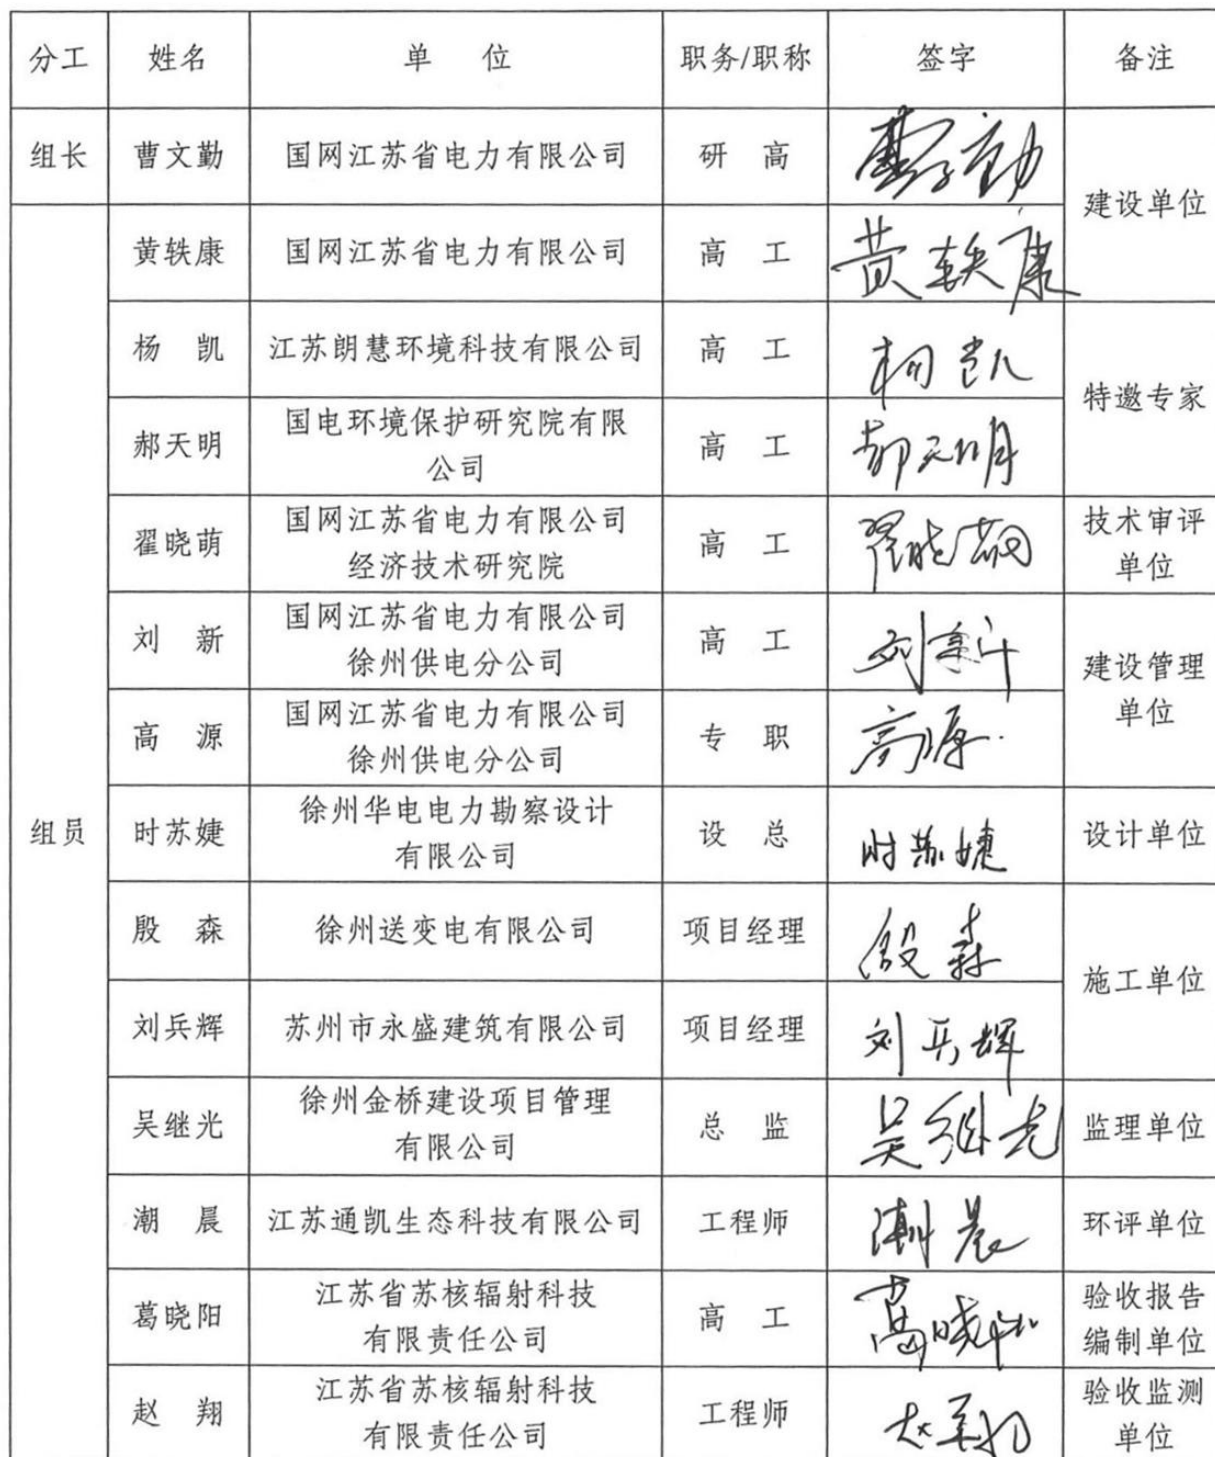 分工 姓名 单 位 职务/职称 签字 备注
组长 曹文勤 国网江苏省电力有限公司 研 高 曹文勤 建设单位
组员 黄轶康 国网江苏省电力有限公司 高 工 黄轶康
杨 凯 江苏朗慧环境科技有限公司 高 工 杨凯 特邀专家
郝天明 国电环境保护研究院有限
公司 高 工 郝天明
翟晓萌 国网江苏省电力有限公司
经济技术研究院 高 工 翟晓萌 技术审评
单位
刘 新 国网江苏省电力有限公司
徐州供电分公司 高 工 刘新 建设管理
单位
高 源 国网江苏省电力有限公司
徐州供电分公司 专 职 高源
时苏婕 徐州华电电力勘察设计
有限公司 设 总 时苏婕 设计单位
殷 森 徐州送变电有限公司 项目经理 殷森 施工单位
刘兵辉 苏州市永盛建筑有限公司 项目经理 刘兵辉
吴继光 徐州金桥建设项目管理
有限公司 总 监 吴继光 监理单位
潮 晨 江苏通凯生态科技有限公司 工程师 潮晨 环评单位
葛晓阳 江苏省苏核辐射科技
有限责任公司 高 工 葛晓阳 验收报告
编制单位
赵 翔 江苏省苏核辐射科技
有限责任公司 工程师 赵翔 验收监测
单位